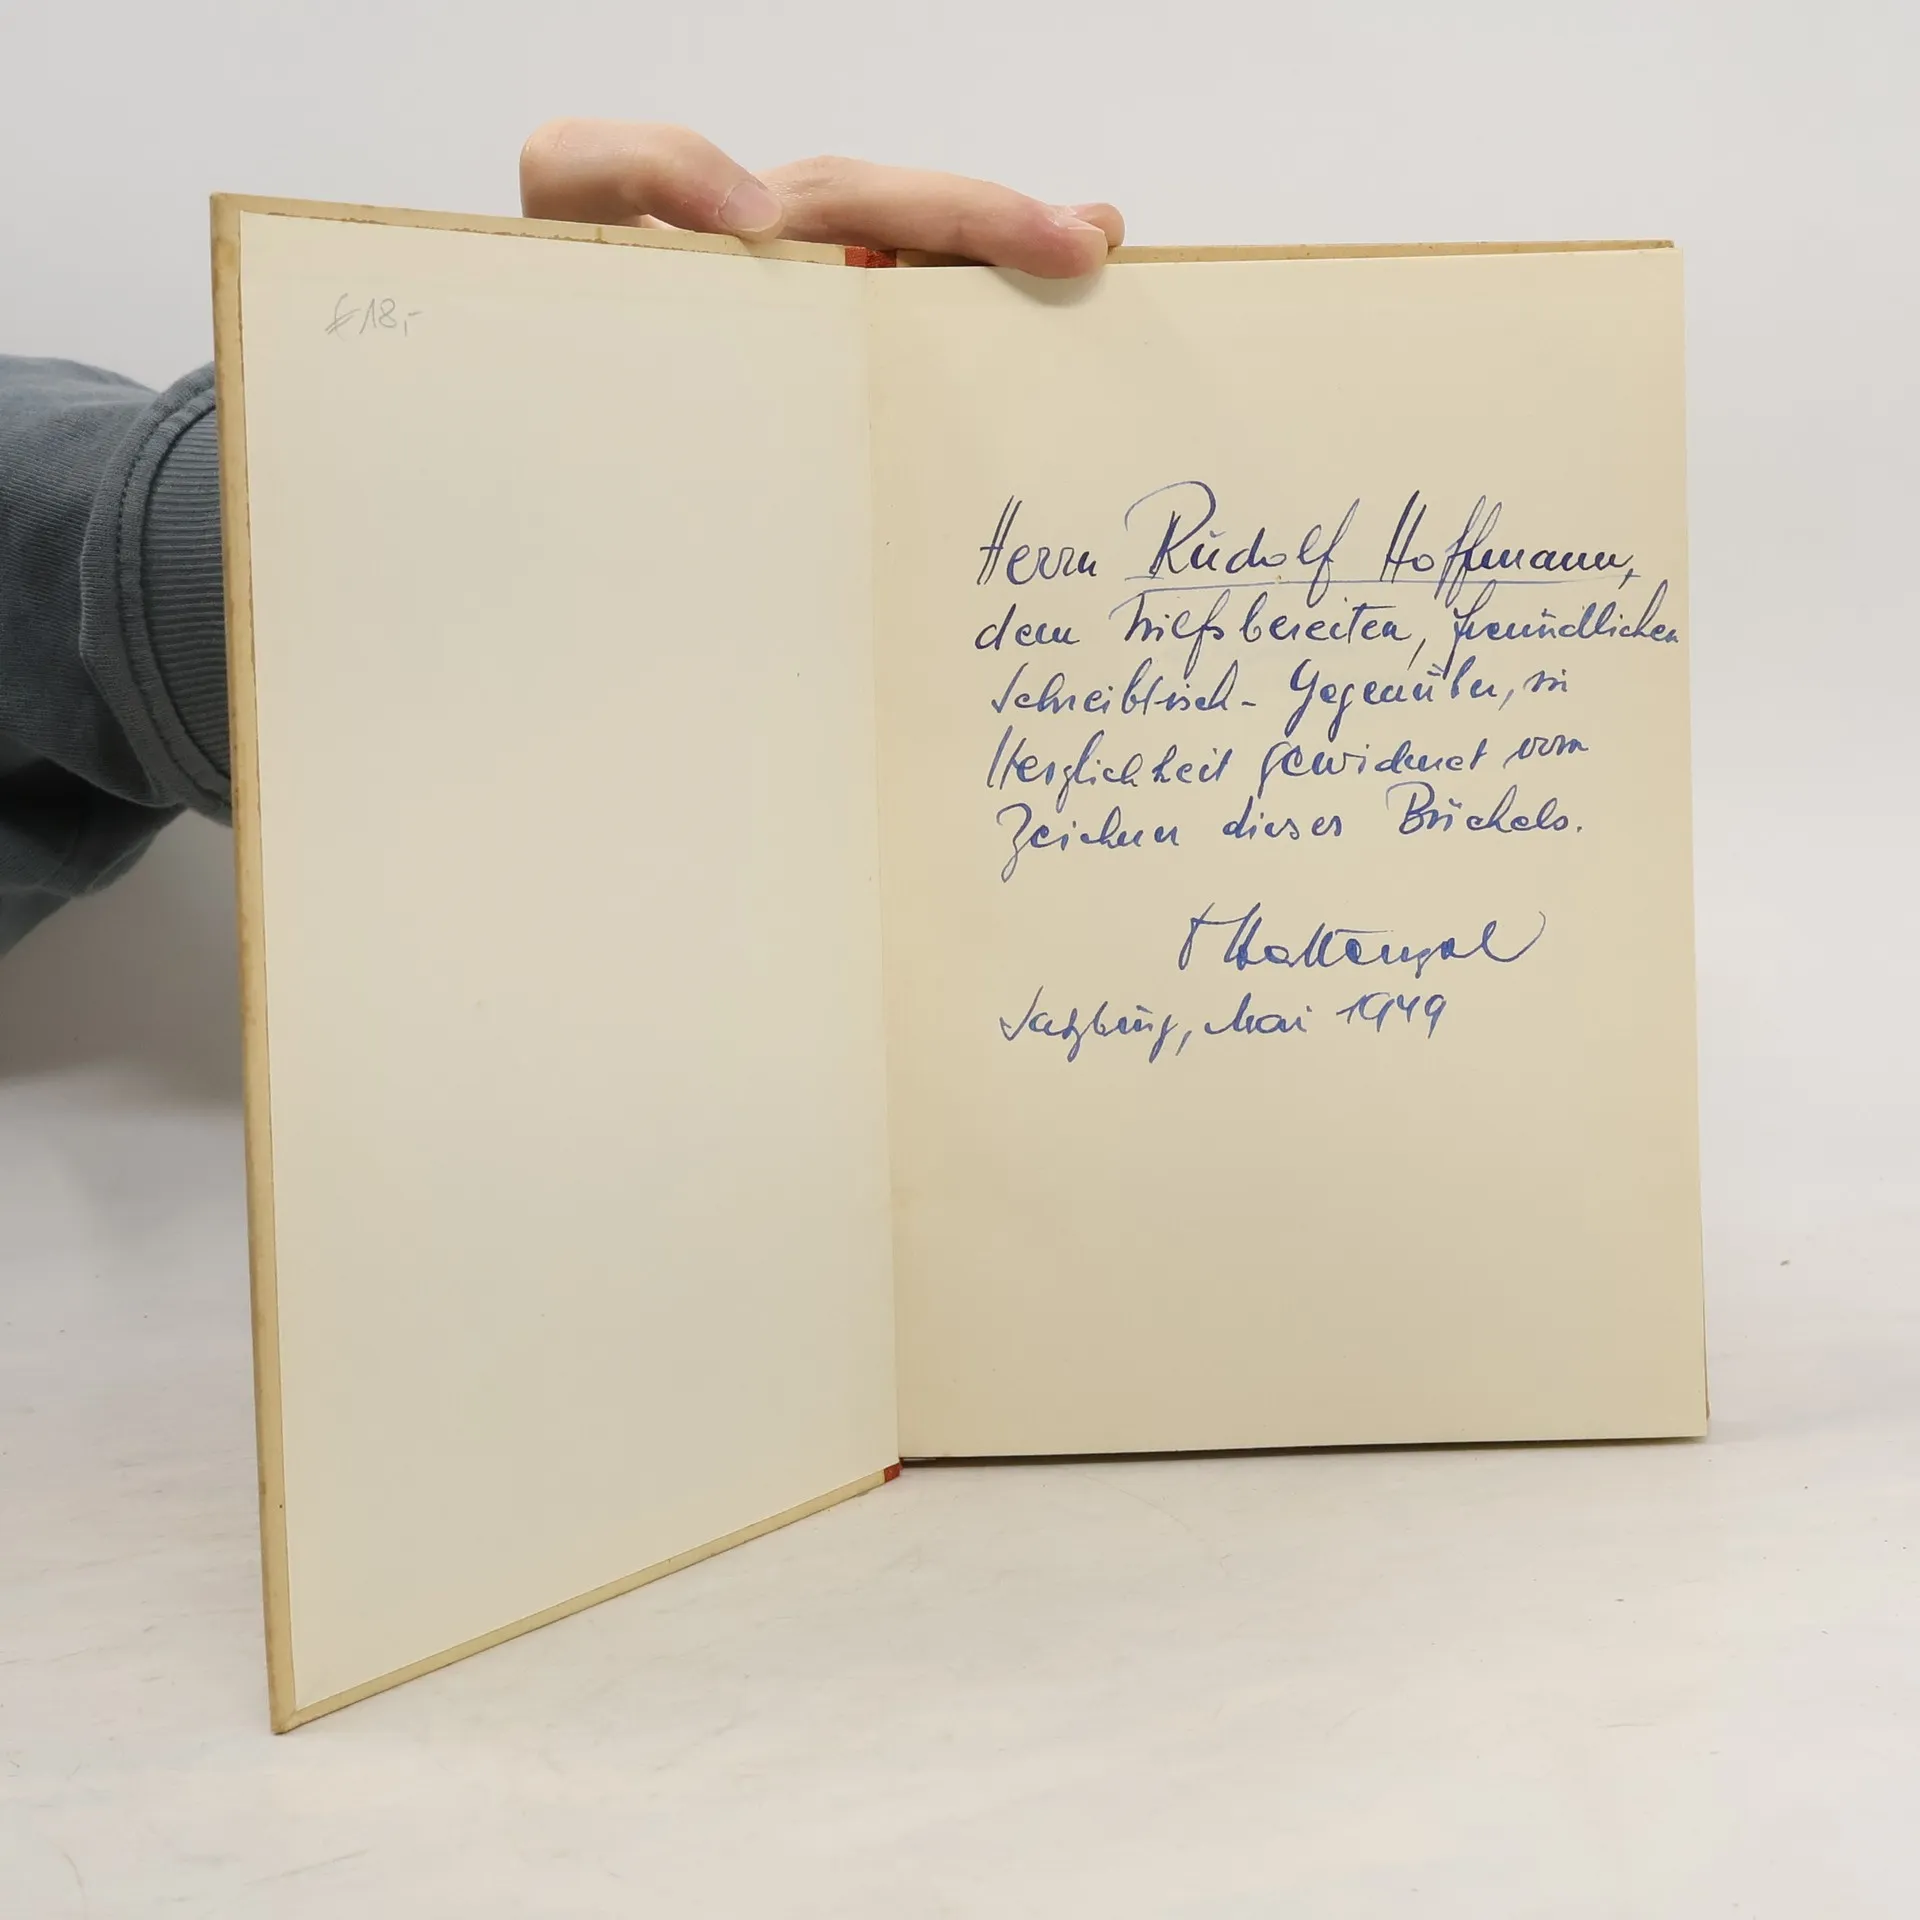 € 18,-
Herrn Rudolf Hoffmann,
dem hilfsbereiten, freundlichen
Schreibtisch-Gegenüber, in
Herzlichkeit gewidmet vom
Zeichner dieses Büchels.
Salzburg, Mai 1949